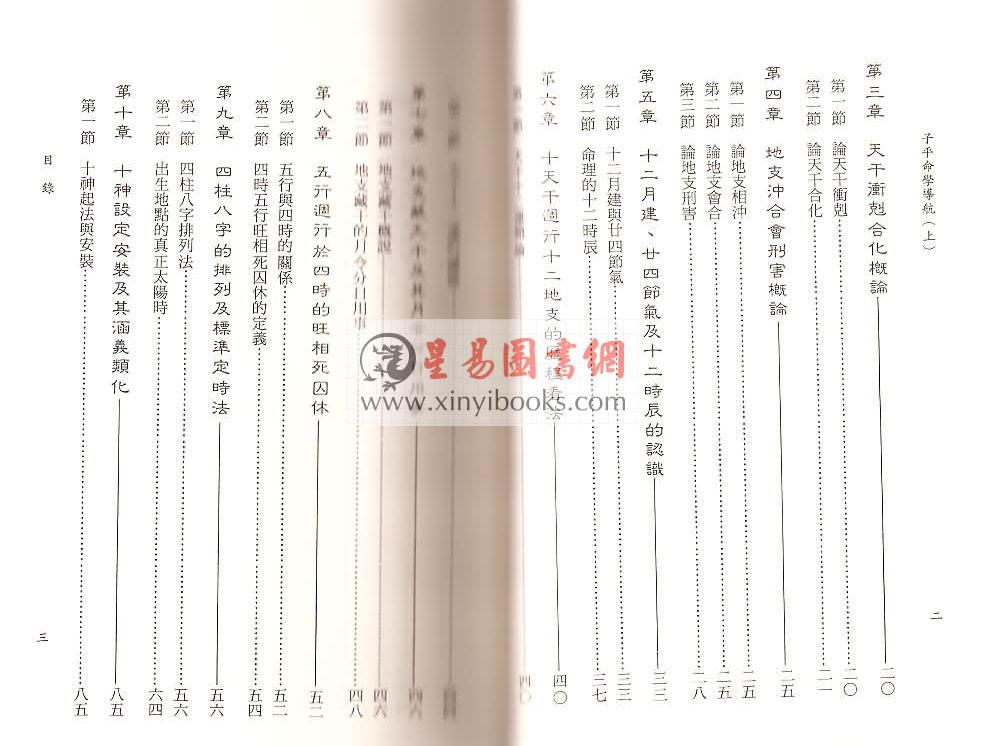 子平命學導航（上）
二
第三章　天干衝剋合化概論 二〇
第一節　論天干衝剋 二〇
第二節　論天干合化 二一
第四章　地支沖合會刑害概論 二五
第一節　論地支相沖 二五
第二節　論地支會合 二五
第三節　論地支刑害 二八
第五章　十二月建、廿四節氣及十二時辰的認識 三三
第一節　十二月建與廿四節氣 三三
第二節　命理的十二時辰 三七
第六章　十天干週行十二地支的歷程看法 四〇
第一節 四〇
第七章 四六
第一節　地支藏干概說 四六
第二節　地支藏干的月令分日用事 四八
第八章　五行週行於四時的旺相死囚休 五二
第一節　五行與四時的關係 五二
第二節　四時五行旺相死囚休的定義 五四
第九章　四柱八字的排列及標準定時法 五六
第一節　四柱八字排列法 五六
第二節　出生地點的真正太陽時 六四
第十章　十神設定安裝及其涵義類化 八五
第一節　十神起法與安裝 八五
目錄
三
星易圖書網
www.xinyibooks.com